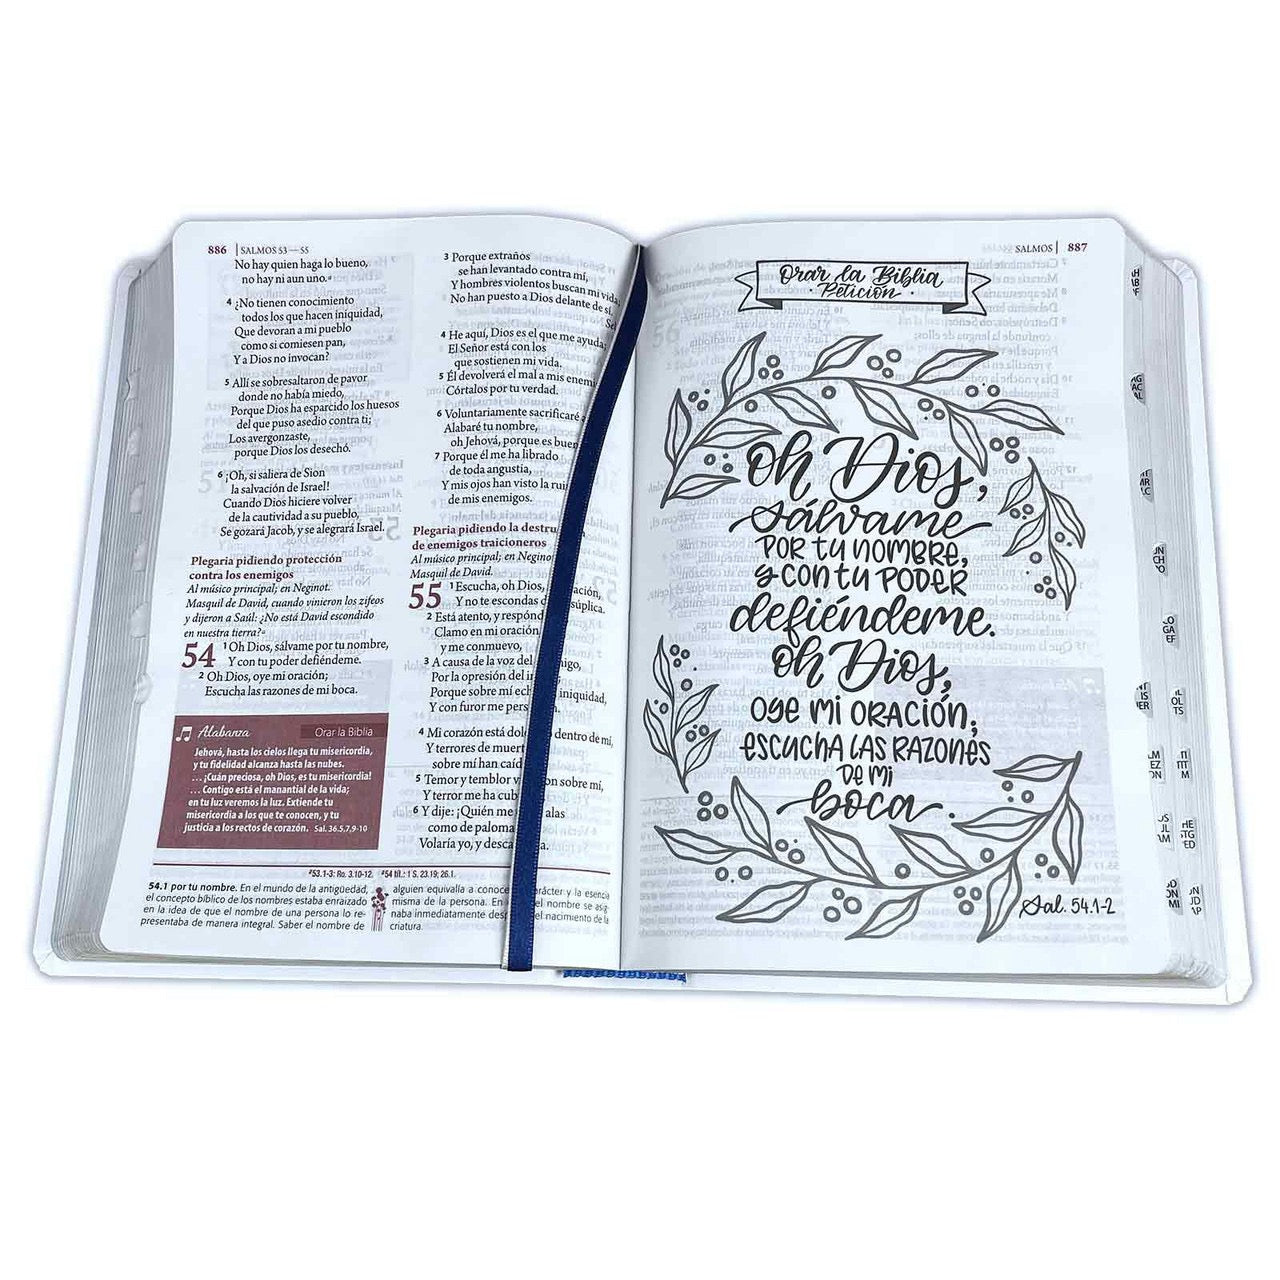 886 | SALMOS 53—55
No hay quien haga lo bueno,
no hay ni aun uno.
4 ¿No tienen conocimiento
todos los que hacen iniquidad,
Que devoran a mi pueblo
como si comiesen pan,
Y a Dios no invocan?
5 Allí se sobresaltaron de pavor
donde no había miedo,
Porque Dios ha esparcido los huesos
del que puso asedio contra ti;
Los avergonzaste,
porque Dios los desechó.
6 ¡Oh, si saliera de Sion
la salvación de Israel!
Cuando Dios hiciere volver
de la cautividad a su pueblo,
Se gozará Jacob, y se alegrará Israel.
Plegaria pidiendo protección
contra los enemigos
Al músico principal; en Neginot.
Masquil de David, cuando vinieron los zifeos
y dijeron a Saúl: ¿No está David escondido
en nuestra tierra?
54 1 Oh Dios, sálvame por tu nombre,
Y con tu poder defiéndeme.
2 Oh Dios, oye mi oración;
Escucha las razones de mi boca.
Alabanza Orar la Biblia
Jehová, hasta los cielos llega tu misericordia,
y tu fidelidad alcanza hasta las nubes.
. . . ¡Cuán preciosa, oh Dios, es tu misericordia!
. . . Contigo está el manantial de la vida;
en tu luz veremos la luz. Extiende tu
misericordia a los que te conocen, y tu
justicia a los rectos de corazón. Sal. 36.5,7,9-10
3 Porque extraños
se han levantado contra mí,
Y hombres violentos buscan mi vida;
No han puesto a Dios delante de sí.
4 He aquí, Dios es el que me ayuda;
El Señor está con los
que sostienen mi vida.
5 Él devolverá el mal a mis
Córtalos por tu verdad.
6 Voluntariamente sacrificaré
Alabaré tu nombre,
oh Jehová, porque es
7 Porque él me ha librado
de toda angustia,
Y mis ojos han visto la
de mis enemigos.
Plegaria pidiendo la
de enemigos traicioneros
Al músico principal; en
Masquil de David.
55 1 Escucha, oh Dios,
Y no te escondas súplica.
2 Está atento, y
Clamo en mi oración
y me conmuevo,
3 A causa de la voz del
Por la opresión del
Porque sobre mí iniquidad,
Y con furor me
4 Mi corazón está dentro de mí,
Y terrores de
sobre mí han
5 Temor y temblor sobre mí,
Y terror me ha
6 Y dije: ¡Quién me alas
como de paloma
Volaría yo, y
53.1-3: Ro. 3.10-12. 54 tít.: 1 S. 23.19; 26.1.
54.1 por tu nombre. En el mundo de la antigüedad,
el concepto bíblico de los nombres estaba enraizado
en la idea de que el nombre de una persona lo re-
presentaba de manera integral. Saber el nombre de
alguien equivalía a y la esencia
misma de la persona. En nombre se asig-
naba inmediatamente nacimiento de la
criatura.
SALMOS | 887
Orar la Biblia
Petición
Oh Dios,
sálvame
POR tu NOMBRE,
y CON tu PODER
defiéndeme.
Oh Dios,
OYE MI ORACIÓN;
ESCUCHA LAS RAZONES
DE MI
boca.
Sal. 54.1-2